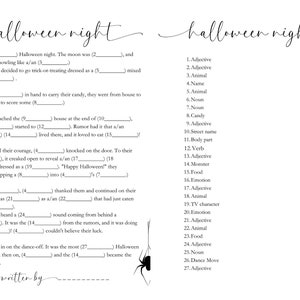 halloween night
_______) Halloween night. The moon was (2_________), and
howling like a/an (3_________).
decided to go trick-or-treating dressed as a (5_________) mixed
in hand to carry their candy, they went from house to
to score some (8_________).
ched the (9_________) house at the end of (10_________),
_________) started to (12_________). Rumor had it that a/an
_______) (14_________) lived there, and it loved to eat (15_________)!
d their courage, (4_________) knocked on the door. To their
), it creaked open to reveal a/an (17_________) (18
ressed as a (19_________). "Happy Halloween!" they
pping a (8_________) into (4_________)'s (7_________)
(4_________) thanked them and continued on their
as a/an (21_________) as a/an (22_________) that had just eaten
heard a (24_________) sound coming from behind a
). It was the (14_________) from the rumors, and it was doing
! (4_________) couldn't believe their luck.
in on the dance-off. It was the most (27_________) Halloween
then on, (4_________) and the (14_________) became the
written by _ _ _ _ _ _ _ _ _
halloween night
1. Adjective
2. Adjective
3. Animal
4. Name
5. Animal
6. Noun
7. Noun
8. Candy
9. Adjective
10. Street name
11. Body part
12. Verb
13. Adjective
14. Monster
15. Food
16. Emotion
17. Adjective
18. Animal
19. TV character
20. Emotion
21. Adjective
22. Animal
23. Food
24. Adjective
25. Noun
26. Dance Move
27. Adjective